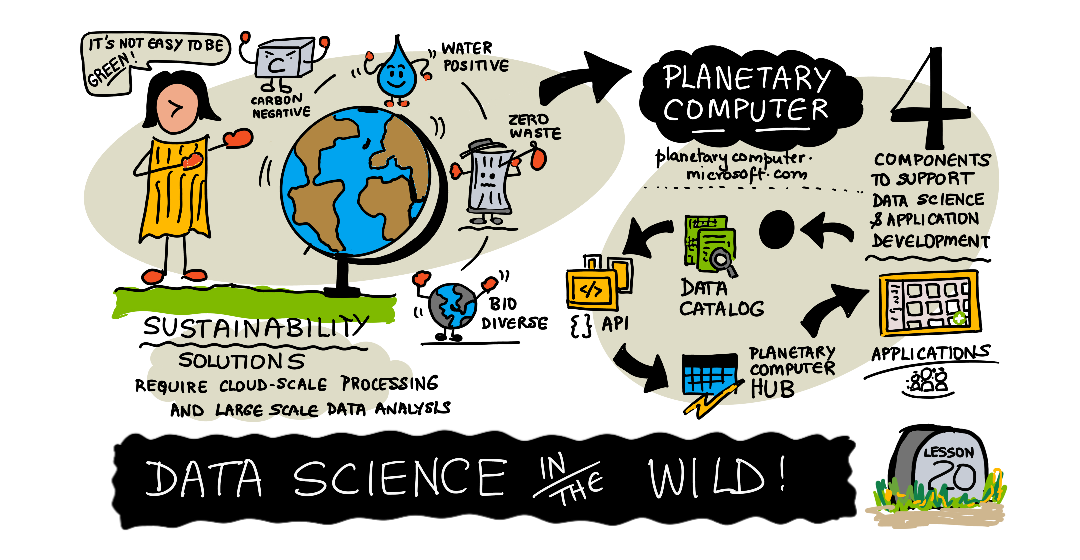 IT'S NOT EASY TO BE
GREEN!
C
CARBON
NEGATIVE
WATER
POSITIVE
ZERO
WASTE
BIO
DIVERSE
SUSTAINABILITY
SOLUTIONS
REQUIRE CLOUD-SCALE PROCESSING
AND LARGE SCALE DATA ANALYSIS
PLANETARY
COMPUTER
planetarycomputer.
microsoft.com
4
COMPONENTS
TO SUPPORT
DATA SCIENCE
& APPLICATION
DEVELOPMENT
DATA
CATALOG
</>
{} API
PLANETARY
COMPUTER
HUB
APPLICATIONS
DATA SCIENCE IN THE WILD!
LESSON
20